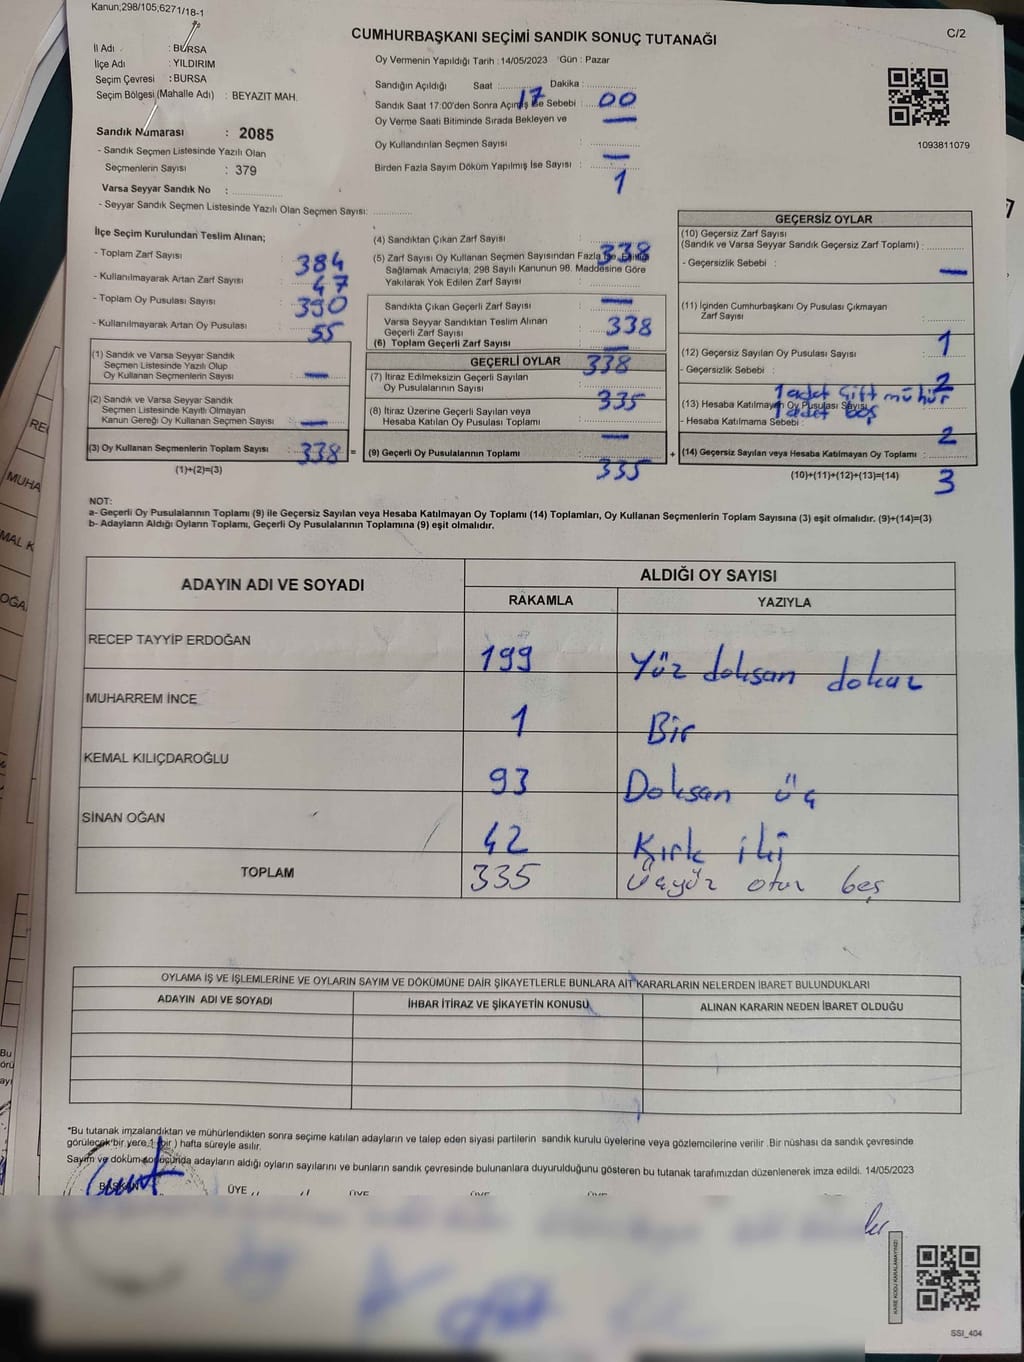 Kanun;298/105;6271/18-1
CUMHURBAŞKANI SEÇİMİ SANDIK SONUÇ TUTANAĞI
C/2
İl Adı : BURSA
İlçe Adı : YILDIRIM
Seçim Çevresi : BURSA
Seçim Bölgesi (Mahalle Adı) : BEYAZIT MAH.
Sandık Numarası : 2085
- Sandık Seçmen Listesinde Yazılı Olan
Seçmenlerin Sayısı : 379
Varsa Seyyar Sandık No :
- Seyyar Sandık Seçmen Listesinde Yazılı Olan Seçmen Sayısı:
Oy Vermenin Yapıldığı Tarih : 14/05/2023 Gün : Pazar
Sandığın Açıldığı Saat : 17 Dakika : 00
Sandık Saat 17:00'den Sonra Açılmış İse Sebebi : —
Oy Verme Saati Bitiminde Sırada Bekleyen ve
Oy Kullandırılan Seçmen Sayısı : —
Birden Fazla Sayım Döküm Yapılmış İse Sayısı : 1
1093811079
İlçe Seçim Kurulundan Teslim Alınan;
- Toplam Zarf Sayısı : 384
- Kullanılmayarak Artan Zarf Sayısı : 47
- Toplam Oy Pusulası Sayısı : 390
- Kullanılmayarak Artan Oy Pusulası : 55
(1) Sandık ve Varsa Seyyar Sandık
Seçmen Listesinde Yazılı Olup
Oy Kullanan Seçmenlerin Sayısı : —
(2) Sandık ve Varsa Seyyar Sandık
Seçmen Listesinde Kayıtlı Olmayan
Kanun Gereği Oy Kullanan Seçmen Sayısı : —
(3) Oy Kullanan Seçmenlerin Toplam Sayısı : 338 =
(1)+(2)=(3)
(4) Sandıktan Çıkan Zarf Sayısı : 338
(5) Zarf Sayısı Oy Kullanan Seçmen Sayısından Fazla İse, Eşitliği
Sağlamak Amacıyla; 298 Sayılı Kanunun 98. Maddesine Göre
Yakılarak Yok Edilen Zarf Sayısı : —
Sandıkta Çıkan Geçerli Zarf Sayısı : 338
Varsa Seyyar Sandıktan Teslim Alınan
Geçerli Zarf Sayısı :
(6) Toplam Geçerli Zarf Sayısı : 338
GEÇERLİ OYLAR
(7) İtiraz Edilmeksizin Geçerli Sayılan
Oy Pusulalarının Sayısı : 335
(8) İtiraz Üzerine Geçerli Sayılan veya
Hesaba Katılan Oy Pusulası Toplamı : —
(9) Geçerli Oy Pusulalarının Toplamı : 335 +
GEÇERSİZ OYLAR
(10) Geçersiz Zarf Sayısı
(Sandık ve Varsa Seyyar Sandık Geçersiz Zarf Toplamı) : —
- Geçersizlik Sebebi :
(11) İçinden Cumhurbaşkanı Oy Pusulası Çıkmayan
Zarf Sayısı : 1
(12) Geçersiz Sayılan Oy Pusulası Sayısı : 2
- Geçersizlik Sebebi : 1 adet çift mühür
1 adet boş
(13) Hesaba Katılmayan Oy Pusulası Sayısı : 2
- Hesaba Katılmama Sebebi :
(14) Geçersiz Sayılan veya Hesaba Katılmayan Oy Toplamı : 3
(10)+(11)+(12)+(13)=(14)
NOT:
a- Geçerli Oy Pusulalarının Toplamı (9) ile Geçersiz Sayılan veya Hesaba Katılmayan Oy Toplamı (14) Toplamları, Oy Kullanan Seçmenlerin Toplam Sayısına (3) eşit olmalıdır. (9)+(14)=(3)
b- Adayların Aldığı Oyların Toplamı, Geçerli Oy Pusulalarının Toplamına (9) eşit olmalıdır.
ADAYIN ADI VE SOYADI ALDIĞI OY SAYISI
RAKAMLA YAZIYLA
RECEP TAYYİP ERDOĞAN 199 Yüz doksan dokuz
MUHARREM İNCE 1 Bir
KEMAL KILIÇDAROĞLU 93 Doksan üç
SİNAN OĞAN 42 Kırk iki
TOPLAM 335 üçyüz otuz beş
OYLAMA İŞ VE İŞLEMLERİNE VE OYLARIN SAYIM VE DÖKÜMÜNE DAİR ŞİKAYETLERLE BUNLARA AİT KARARLARIN NELERDEN İBARET BULUNDUKLARI
ADAYIN ADI VE SOYADI İHBAR İTİRAZ VE ŞİKAYETİN KONUSU ALINAN KARARIN NEDEN İBARET OLDUĞU
*Bu tutanak imzalandıktan ve mühürlendikten sonra seçime katılan adayların ve talep eden siyasi partilerin sandık kurulu üyelerine veya gözlemcilerine verilir .Bir nüshası da sandık çevresinde
görülecek bir yere 1 (bir ) hafta süreyle asılır.
Sayım ve döküm sonucunda adayların aldığı oyların sayılarını ve bunların sandık çevresinde bulunanlara duyurulduğunu gösteren bu tutanak tarafımızdan düzenlenerek imza edildi. 14/05/2023
BAŞKAN ÜYE ÜYE ÜYE ÜYE
KARE KODU KARALAMAYINIZ!
SSI_404